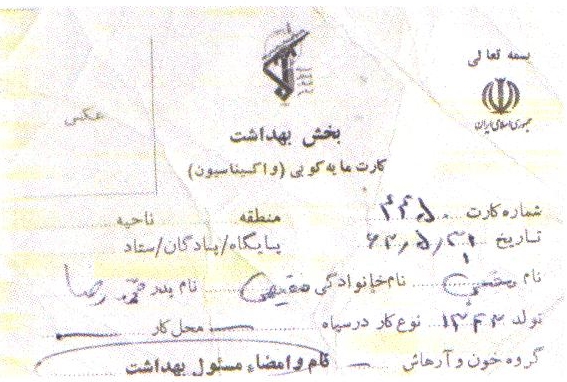 بسمه تعالی
جمهوری اسلامی ایران
عکس
بخش بهداشت
کارت مایه کوبی (واکسیناسیون)
شماره کارت ۴۴۵۰ منطقه ناحیه
تاریخ ۶۲/۵/۳۱ پایگاه/پادگان/ستاد
نام مجتبی نام خانوادگی نام پدر محمدرضا
تولد ۱۳۴۳ نوع کار در سپاه محل کار
گروه خون و آرهاش نام و امضاء مسئول بهداشت